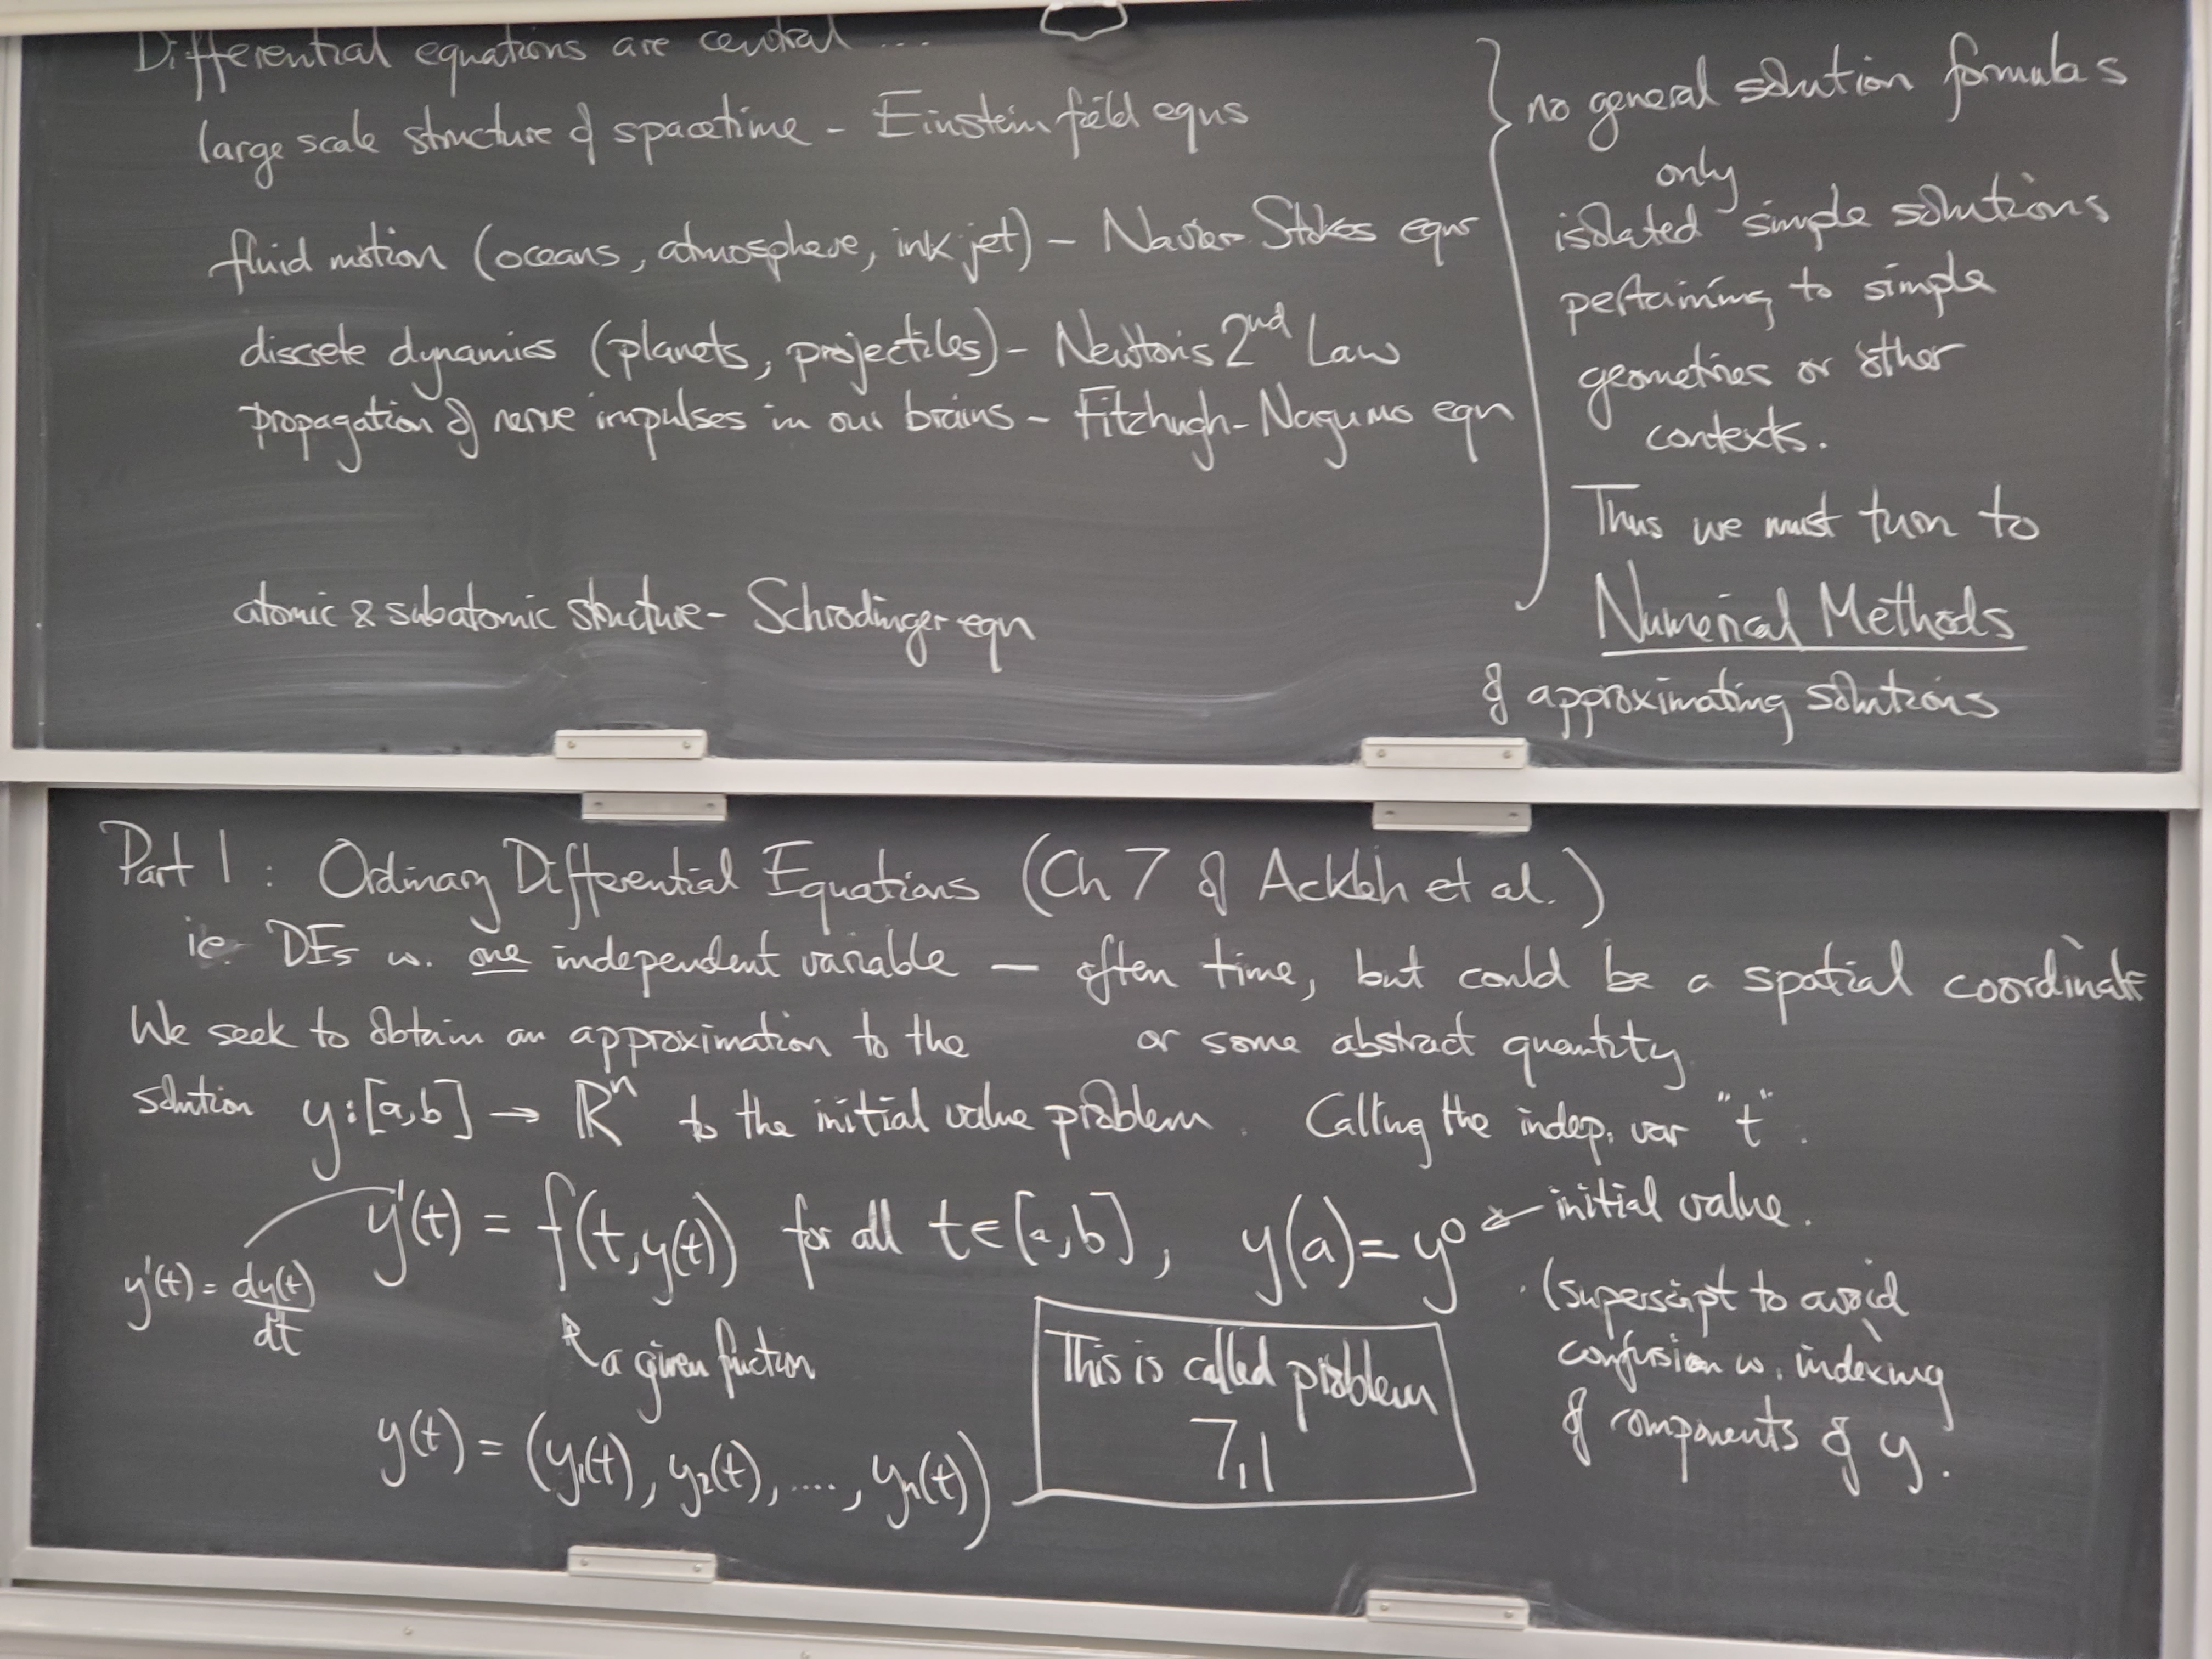 Differential equations are central ...
large scale structure of spacetime - Einstein field eqns
fluid motion (oceans, atmosphere, ink jet) - Navier Stokes eqns
discrete dynamics (planets, projectiles) - Newton's 2nd Law
propagation of nerve impulses in our brains - Fitzhugh-Nagumo eqn
atomic & subatomic structure - Schrodinger eqn
no general solution formulas
only
isolated simple solutions
pertaining to simple
geometries or other
contexts.
Thus we must turn to
Numerical Methods
of approximating solutions
Part 1: Ordinary Differential Equations (Ch 7 of Ackleh et al.)
ie. DEs w. one independent variable — often time, but could be a spatial coordinate
or some abstract quantity.
We seek to obtain an approximation to the
solution y:[a,b] → ℝⁿ to the initial value problem. Calling the indep. var "t".
y'(t) = f(t,y(t)) for all t∈[a,b], y(a)=y⁰ ← initial value.
y'(t) = dy(t)/dt
a given function
(superscript to avoid
confusion w. indexing
of components of y.
This is called problem
7.1
y(t) = (y₁(t), y₂(t), ...., yₙ(t))